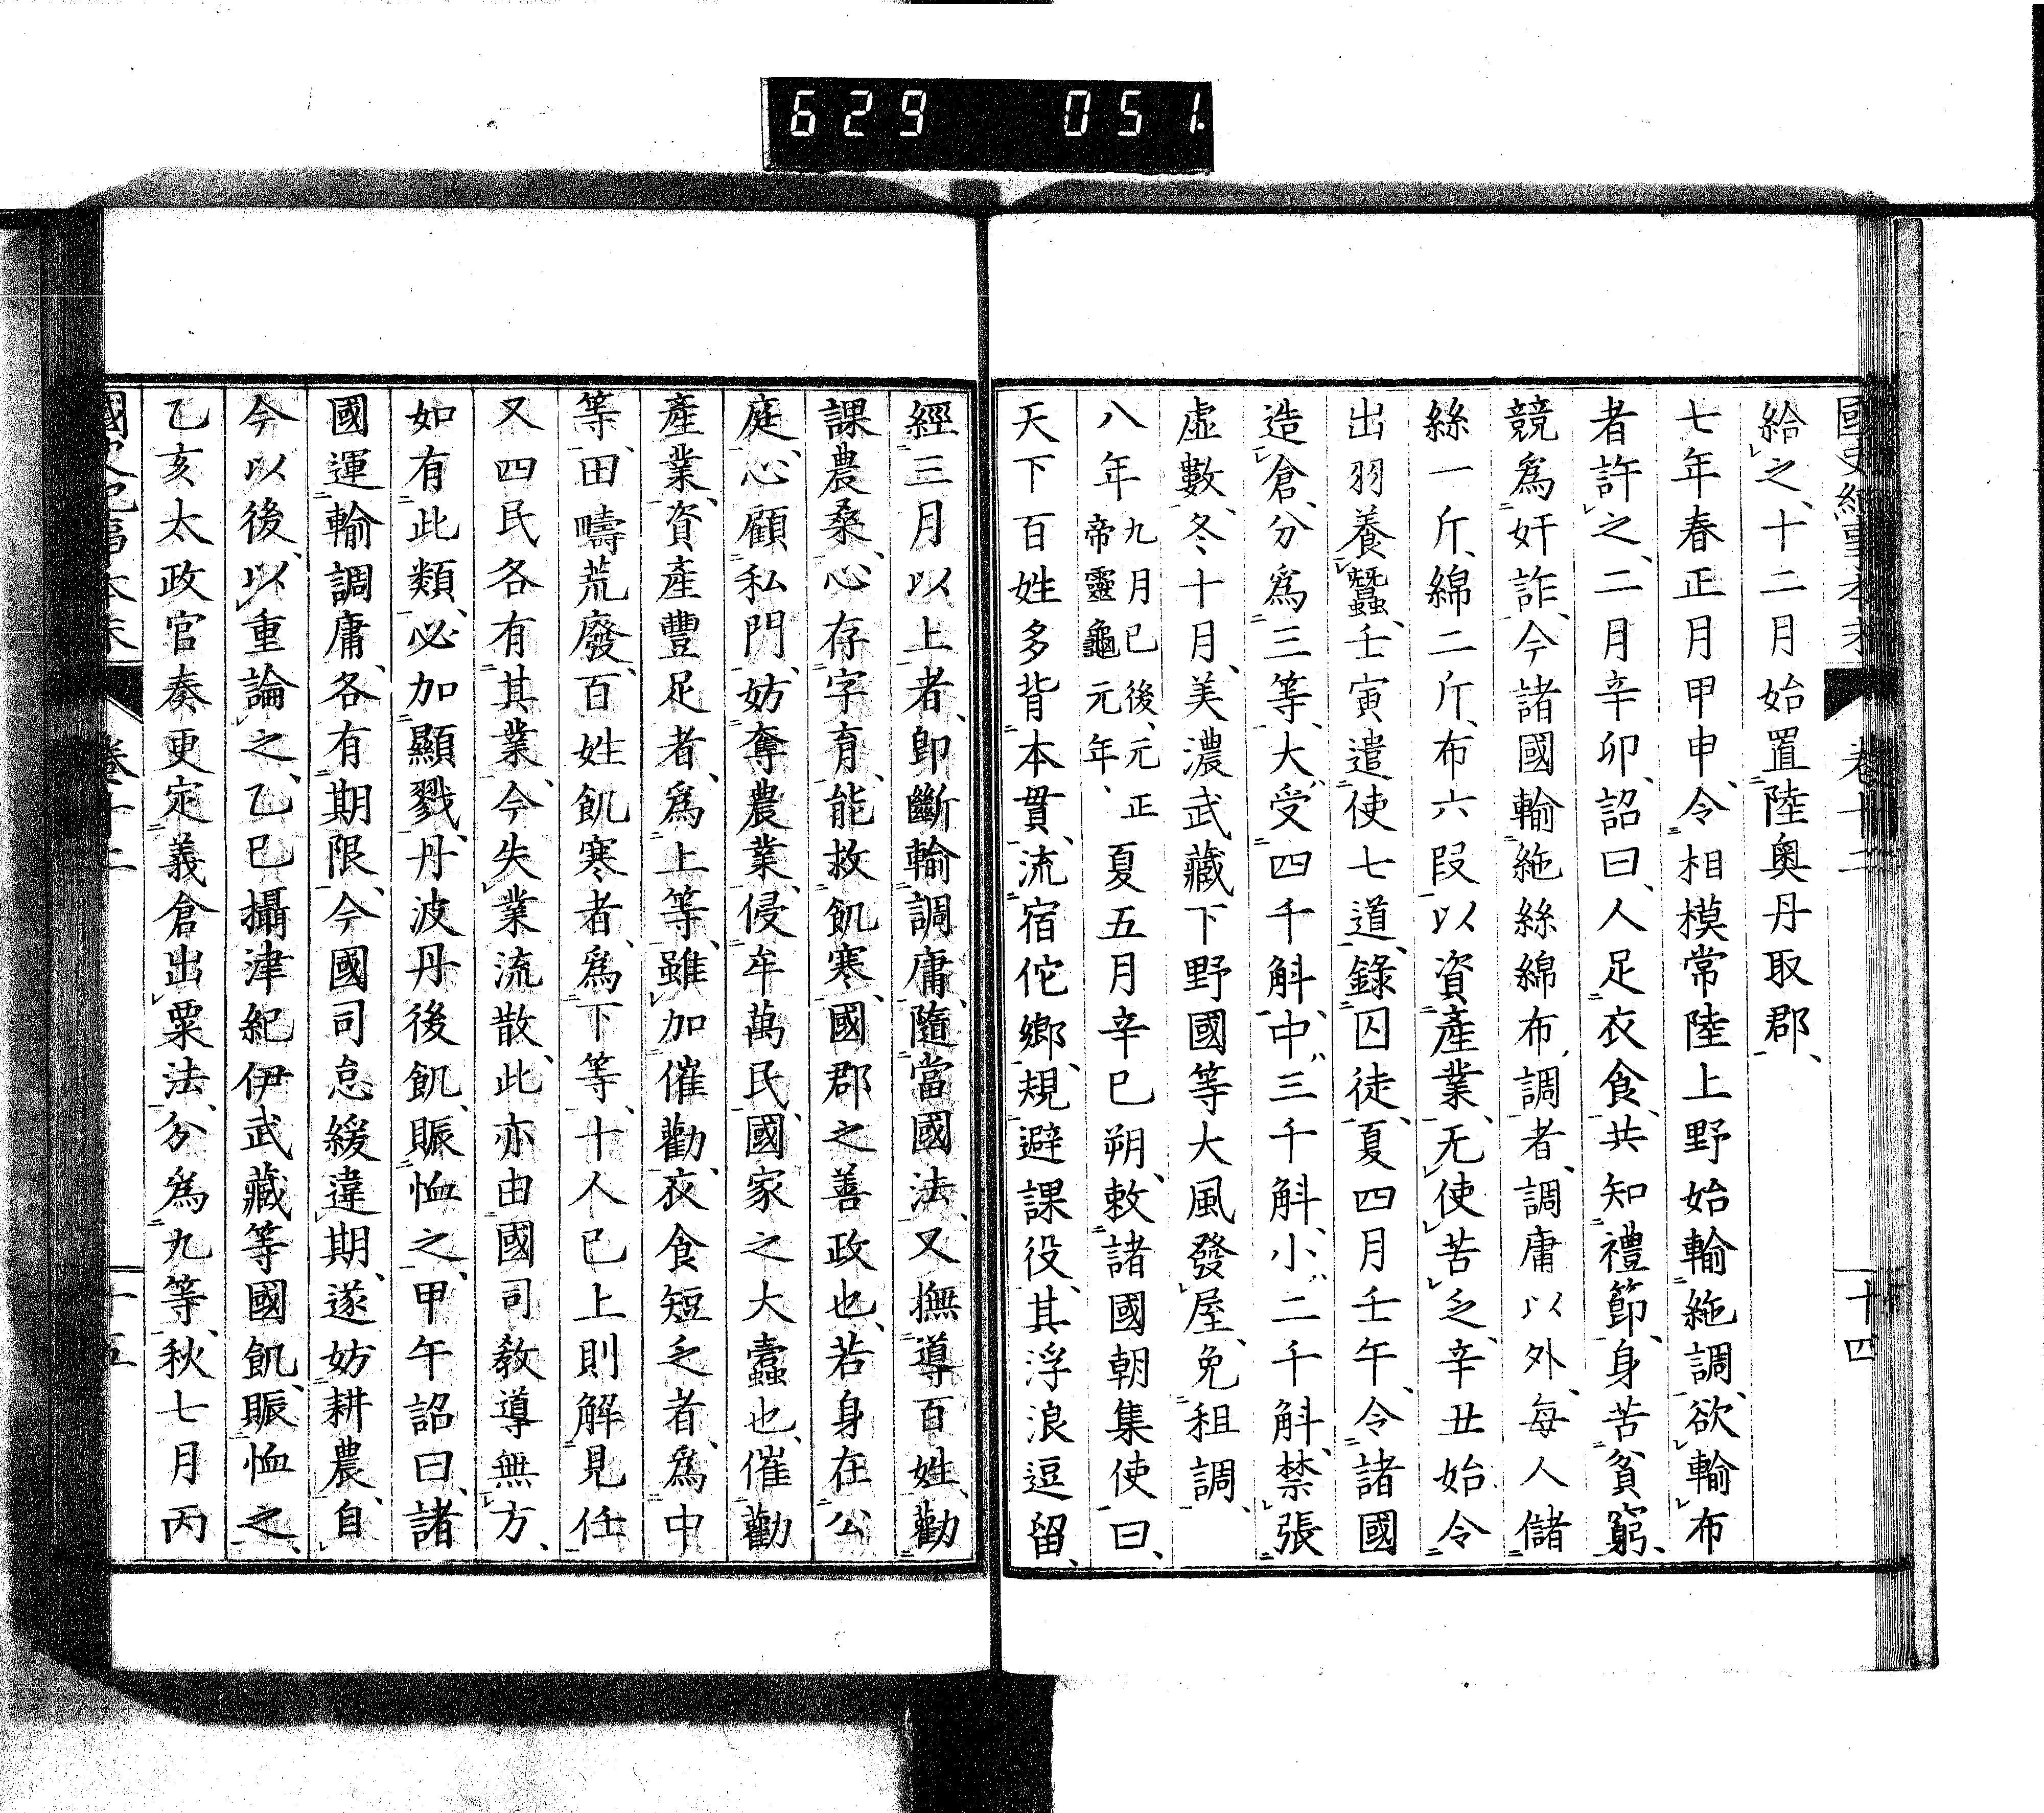 629 051.
國史紀事本末 卷十二 十四
給之、十二月始置陸奧丹取郡、
七年春正月甲申、令相模常陸上野始輸絁調、欲輸布
者許之、二月辛卯、詔曰、人足衣食、共知禮節、身苦貧窮、
競爲奸詐、今諸國輸絁絲綿布、調者、調庸以外、每人儲
絲一斤、綿二斤、布六段、以資產業、无使苦乏、辛丑始令
出羽養蠶、壬寅遣使七道、錄囚徒、夏四月壬午、令諸國
造倉、分爲三等、大、受四千斛、中、三千斛、小、二千斛、禁張
虛數、冬十月、美濃武藏下野國等大風發屋、免租調、
八年九月已後、元正帝靈龜元年、夏五月辛巳朔、敕諸國朝集使曰、
天下百姓多背本貫、流宿佗鄉、規避課役、其浮浪逗留、
經三月以上者、卽斷輸調庸、隨當國法、又撫導百姓、勸
課農桑、心存字育、能救飢寒、國郡之善政也、若身在公
庭、心顧私門、妨奪農業、侵牟萬民、國家之大蠹也、催勸
產業、資產豐足者、爲上等、雖加催勸、衣食短乏者、爲中
等、田疇荒廢、百姓飢寒者、爲下等、十人已上則解見任
又四民各有其業、今失業流散、此亦由國司敎導無方、
如有此類、必加顯戮、丹波丹後飢、賑恤之、甲午詔曰、諸
國運輸調庸、各有期限、今國司怠緩違期、遂妨耕農、自
今以後、以重論之、乙巳攝津紀伊武藏等國飢、賑恤之、
乙亥太政官奏更定義倉出粟法、分爲九等、秋七月丙
國史紀事本末 卷十二 十五